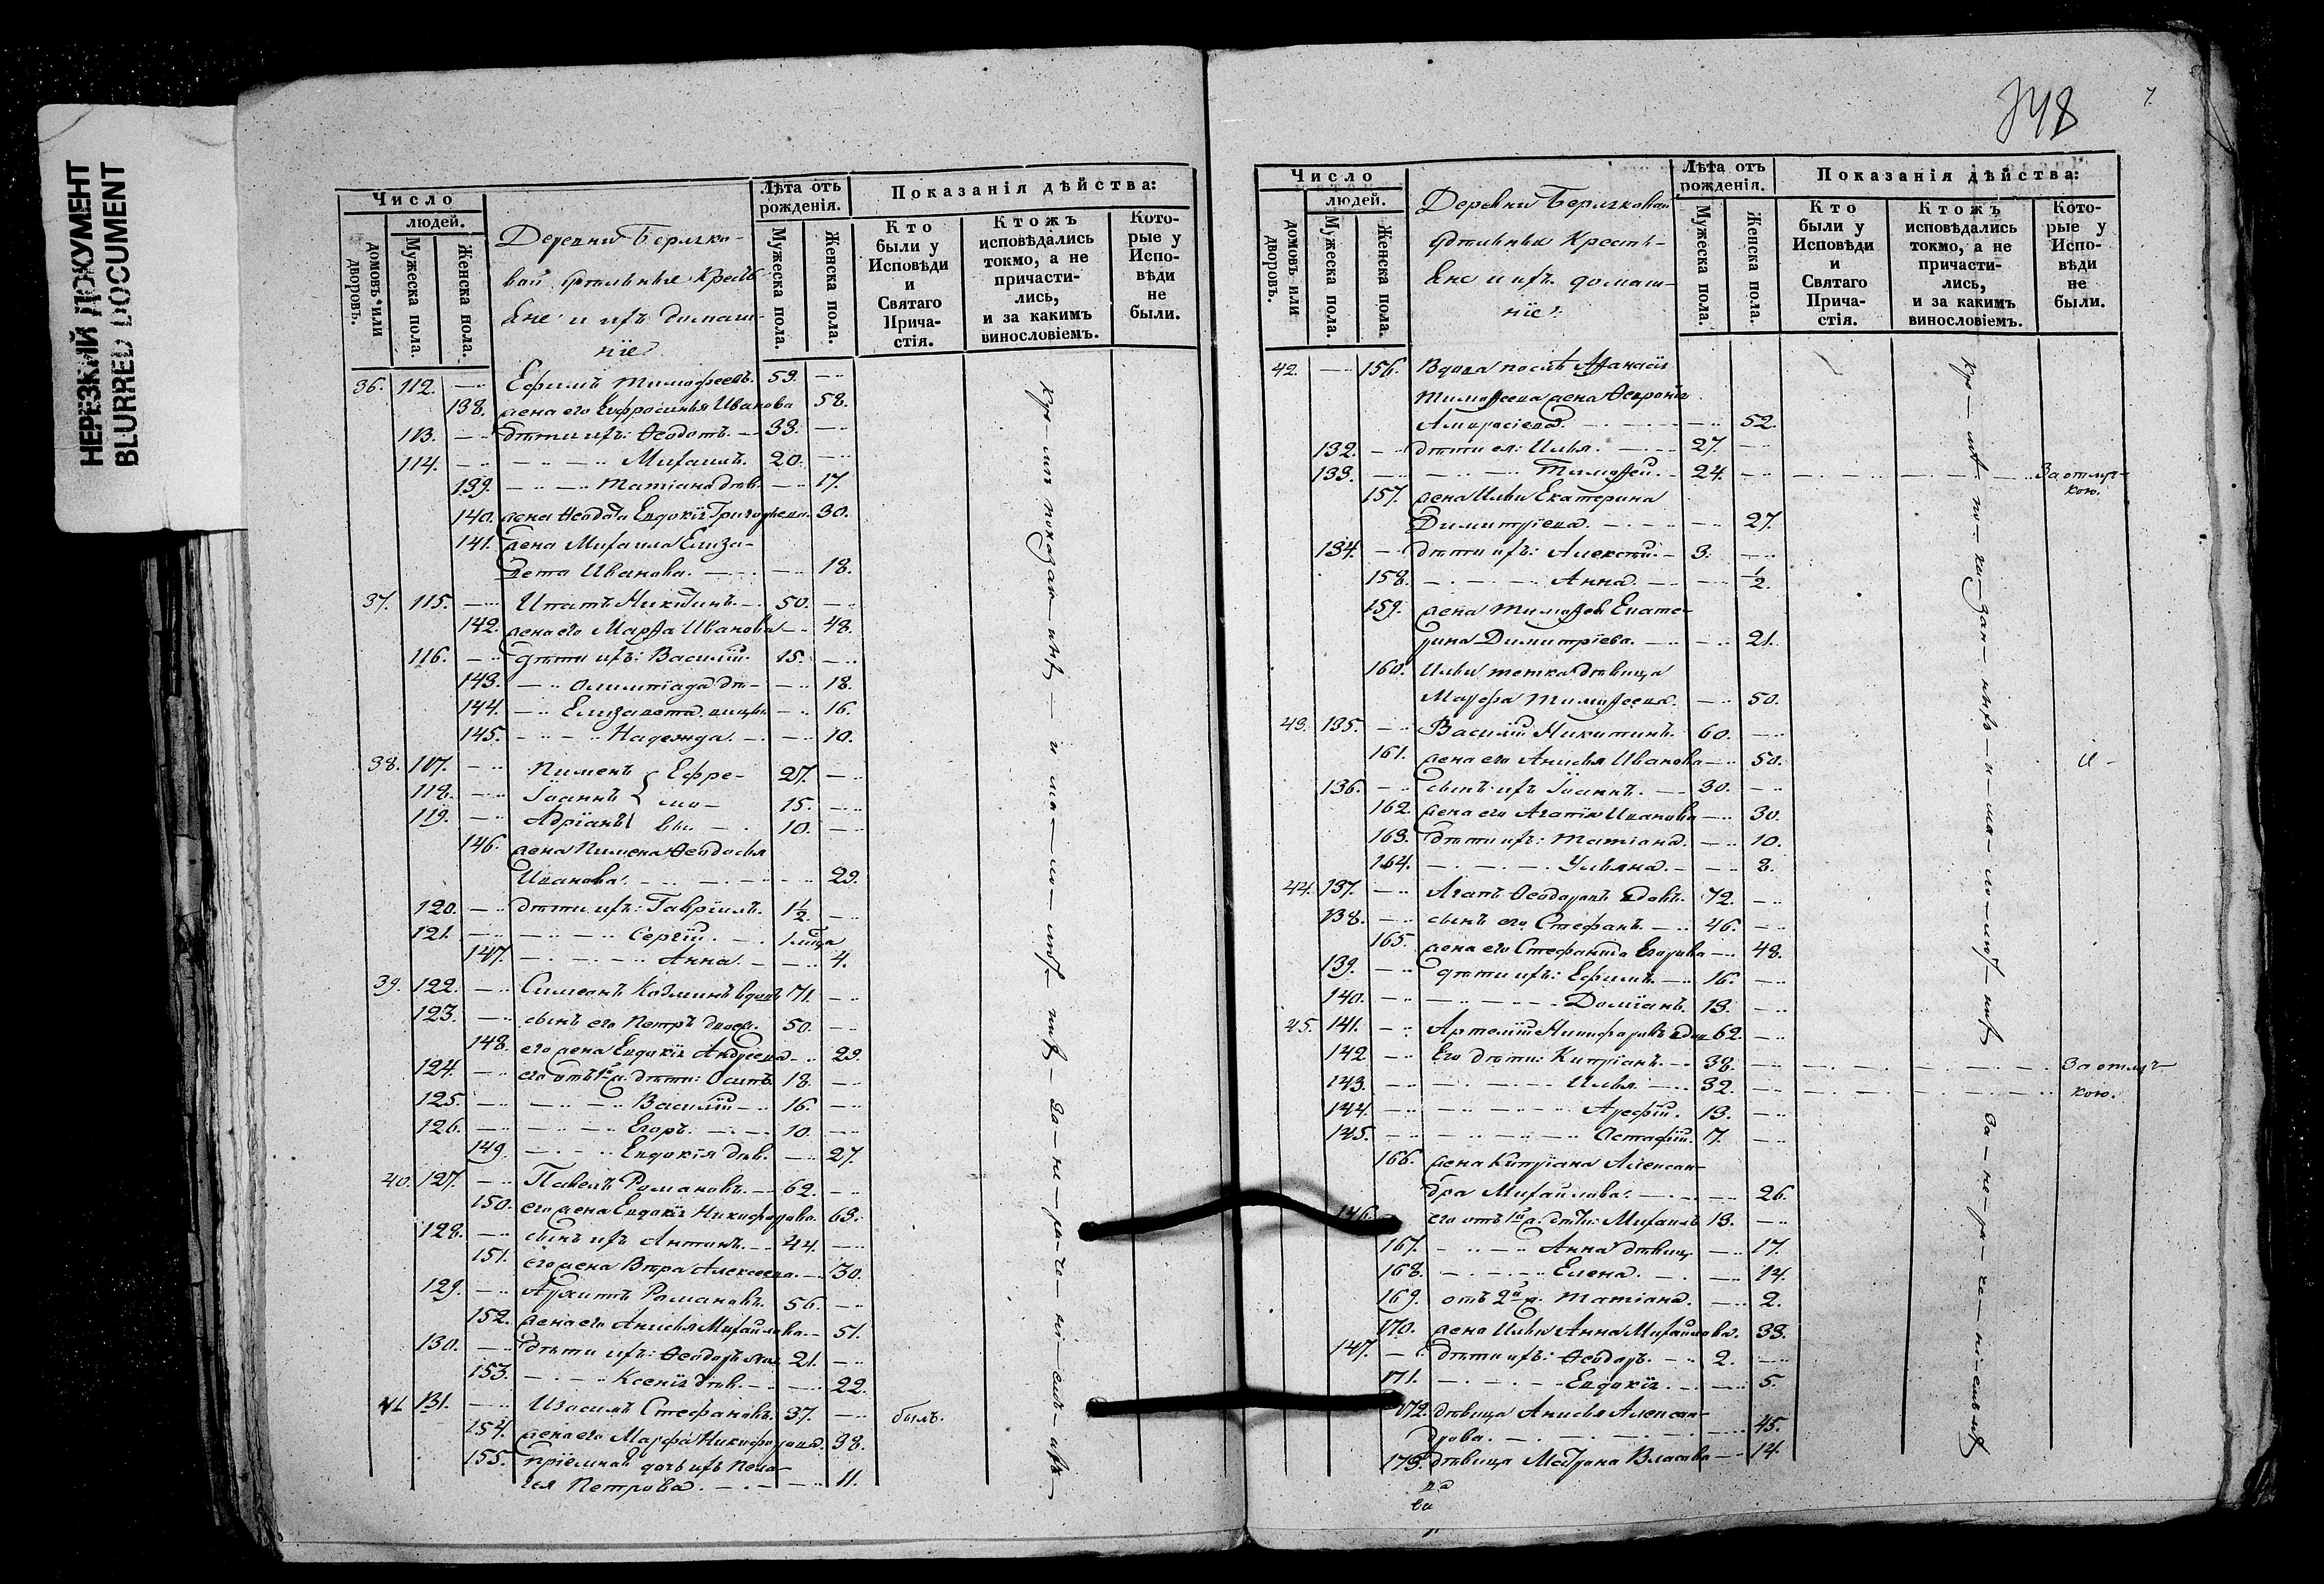 НЕРЕЗКИЙ ДОКУМЕНТ
BLURRED DOCUMENT
Число
людей.
домовъ или дворовъ.
Мужеска пола.
Женска пола.
Деревни
вой удѣльные Кресть
яне и ихъ домаш-
ніе.
Лѣта отъ рожденія.
Мужеска пола.
Женска пола.
Показанія дѣйства:
Кто были у Исповѣди и Святаго Прича-стія.
Ктожъ исповѣдались токмо, а не причасти-лись, и за какимъ винословіемъ.
Кото-рые у Испо-вѣди не были.
36. 112. Ефимъ Тимофеевъ. 59.
138. жена его Евфросинья Иванова 58.
113. дѣти ихъ: Ѳеодотъ. 33.
114. Михаилъ. 20.
139. Татіана дѣв. 17.
140. жена Ѳеодота Евдокія Григорьева. 30.
141. жена Михаила Елиза-
вета Иванова. 18.
37. 115. Ипатъ Никитинъ. 50.
142. жена его Марѳа Иванова 48.
116. дѣти ихъ: Василій. 15.
143. Олимпіада дѣ- 18.
144. Елизавета вицы 16.
145. Надежда. 10.
38. 117. Пименъ Ефре- 27.
118. Іоаннъ мо- 15.
119. Адріанъ вы. 10.
146. жена Пимена Ѳеодосья
Иванова. 29.
120. дѣти ихъ: Гавріилъ. 1½.
121. Сергій.
147. Анна. 4.
39. 122. Симеонъ Козминъ вдовъ 71.
123. сынъ его Петръ 50.
148. его жена Евдокія Андреева 29.
124. его отъ 1й ж. дѣти: Осипъ. 18.
125. Василій 16.
126. Егоръ. 10.
149. Евдокія дѣв. 27.
40. 127. Павелъ Романовъ. 62.
150. его жена Евдокія Никифорова. 63.
128. сынъ ихъ Антонъ. 44.
151. его жена Вѣра Алексеева. 30.
129. Архипъ Романовъ. 56.
152. жена его Анисья Михайлова. 51.
130. дѣти ихъ: Ѳеодоръ 21.
153. Ксенія дѣв. 22.
41. 131. Изосимъ Стефановъ. 37. былъ.
154. жена его Марфа Никифорова. 38.
155. пріемная дочь ихъ Пела-
гея Петрова. 11.
348
7.
Число
людей.
домовъ или дворовъ.
Мужеска пола.
Женска пола.
Деревни
удѣльные Кресть-
яне и ихъ домаш-
ніе.
Лѣта отъ рожденія.
Мужеска пола.
Женска пола.
Показанія дѣйства:
Кто были у Исповѣди и Святаго Прича-стія.
Ктожъ исповѣдались токмо, а не причасти-лись, и за какимъ винословіемъ.
Кото-рые у Испо-вѣди не были.
42. 156. Вдова послѣ Аѳанасія
Тимоѳеева жена Ѳевронія
Амвросіева. 52.
132. дѣти ея: Илья. 27.
133. Тимоѳей. 24. За отлуч-
кою.
157. жена Ильи Екатерина
Димитріева. 27.
134. дѣти ихъ: Алексѣй. 3.
158. Анна. ½.
159. жена Тимоѳея Екате-
рина Димитріева. 21.
160. Ильи тетка дѣвица
Марфа Тимоѳеева. 50.
43. 135. Василій Никитинъ. 60.
161. жена его Анисья Иванова 50.
136. сынъ ихъ Іоаннъ. 30.
162. жена его Агапія Иванова 30.
163. дѣти ихъ: Татіана. 10.
164. Ульяна. 8.
44. 137. Агапъ Ѳеодоровъ вдовъ. 72.
138. сынъ его Стефанъ. 46.
165. жена его Стефанида Егорова 48.
139. дѣти ихъ: Ефимъ. 16.
140. Доміанъ. 13.
45. 141. Артемій Никифоровъ вдов 62.
142 Его дѣти: Кипріанъ. 38. За отлуч-
143. Илья. 32. кою.
144. Арефій. 13.
145. Астафій. 7.
166. жена Кипріана Алексан-
дра Михайлова. 26.
146. его отъ 1й ж. дѣти: Михаилъ 13.
167. Анна дѣвиц 17.
168. Елена. 14.
169. отъ 2й ж. Татіана. 2.
170. жена Ильи Анна Михайлова. 33.
147. дѣти ихъ: Ѳеодоръ. 2.
171. Евдокія. 5.
172. дѣвица Анисья Алексан-
дрова. 45.
173. дѣвица Матрона Власова 14.